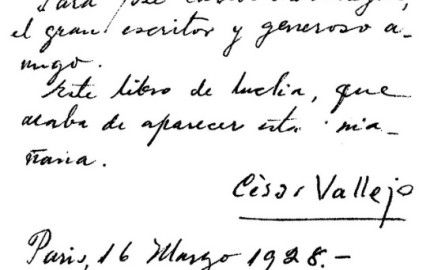 Para José
el gran escritor y generoso a-
migo.
Este libro de lucha, que
acaba de aparecer esta ma-
ñana.
César Vallejo
Paris, 16 Marzo 1928.-